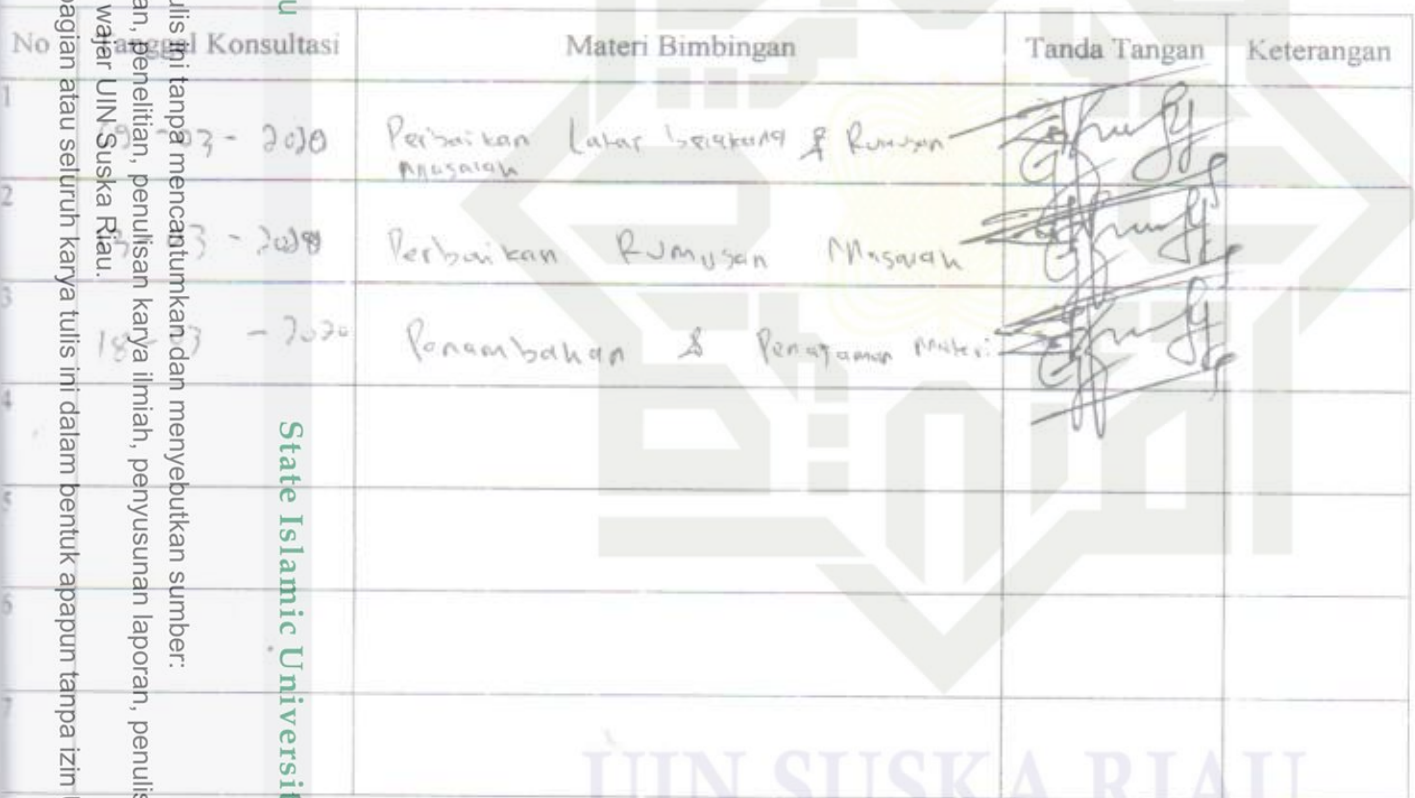 No Tanggal Konsultasi Materi Bimbingan Tanda Tangan Keterangan
1 -03-2020 Perbaikan Latar belakang & Rumusan
Masalah
2 03-2020 Perbaikan Rumusan Masalah
3 18-03-2020 Penambahan & Penajaman Materi
4
5
6
7
State Islamic Universit
ulis ini tanpa mencantumkan dan menyebutkan sumber:
an, penelitian, penulisan karya ilmiah, penyusunan laporan, penulis
wajar UIN Suska Riau.
bagian atau seluruh karya tulis ini dalam bentuk apapun tanpa izin
UIN SUSKA RIAU